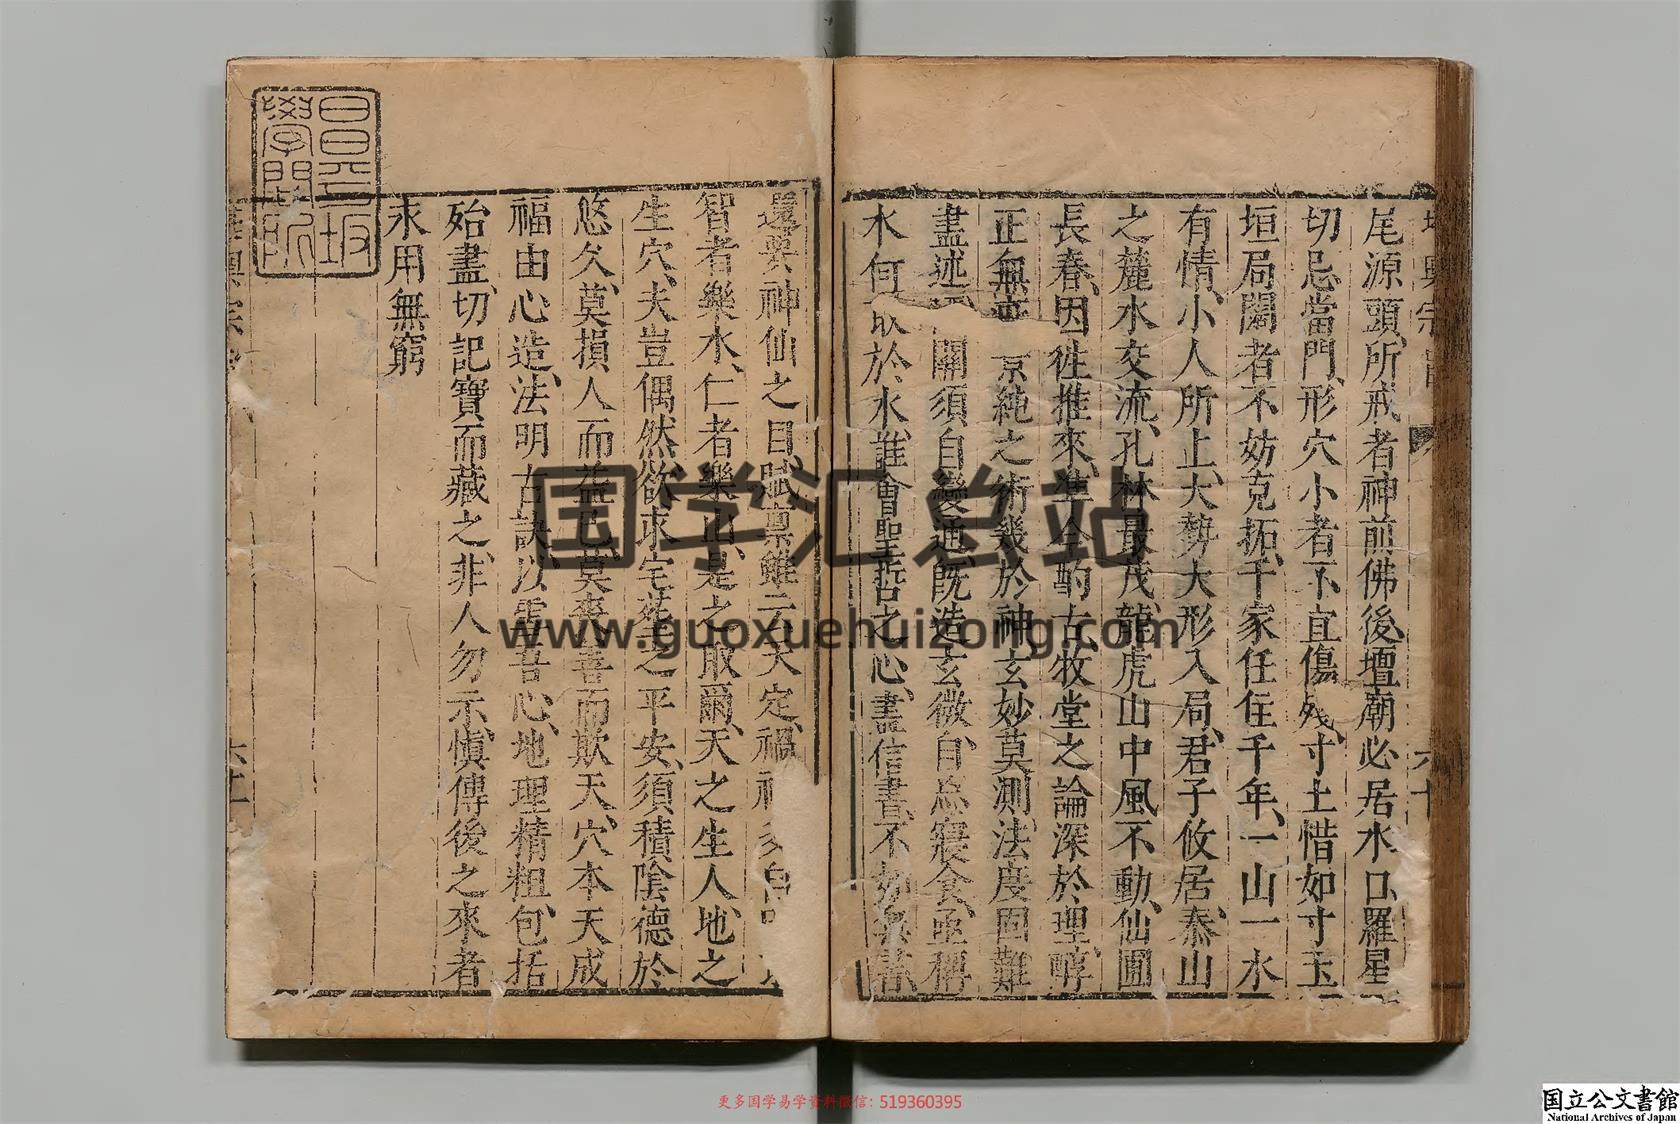 尾源頭、所戒者神前佛後、壇廟必居水口、羅星
切忌當門、形穴小者不宜傷殘、寸土惜如寸玉、
垣局闊者不妨克拓、千家任住千年、一山一水
有情、小人所止、大勢大形入局、君子攸居、泰山
之麓水交流、孔林最茂、龍虎山中風不動、仙圃
長春、因徃推來、準今酌古、牧堂之論深於理、醇
正無 京純之術幾於神、玄妙莫測、法度固難
盡述 關須自變通、既造玄微、自忘寢食、亟稱
水何取於水、誰會聖哲之心、盡信書、不如無書、
還要神仙之目、賦稟雖云天定、禍福多自
智者樂水、仁者樂山、是之取爾、天之生人、地之
生穴、夫豈偶然、欲求宅茔之平安、須積陰德於
悠久、莫損人而益己、莫喪善而欺天、穴本天成、
福由心造、法明古訣、以雪吾心、地理精粗、包括
殆盡、切記寶而藏之、非人勿示、慎傳後之來者、
永用無窮
昌平坂
學問所
国学汇总站
www.guoxuehuizong.com
更多国学易学资料微信：519360395
国立公文書館
National Archives of Japan